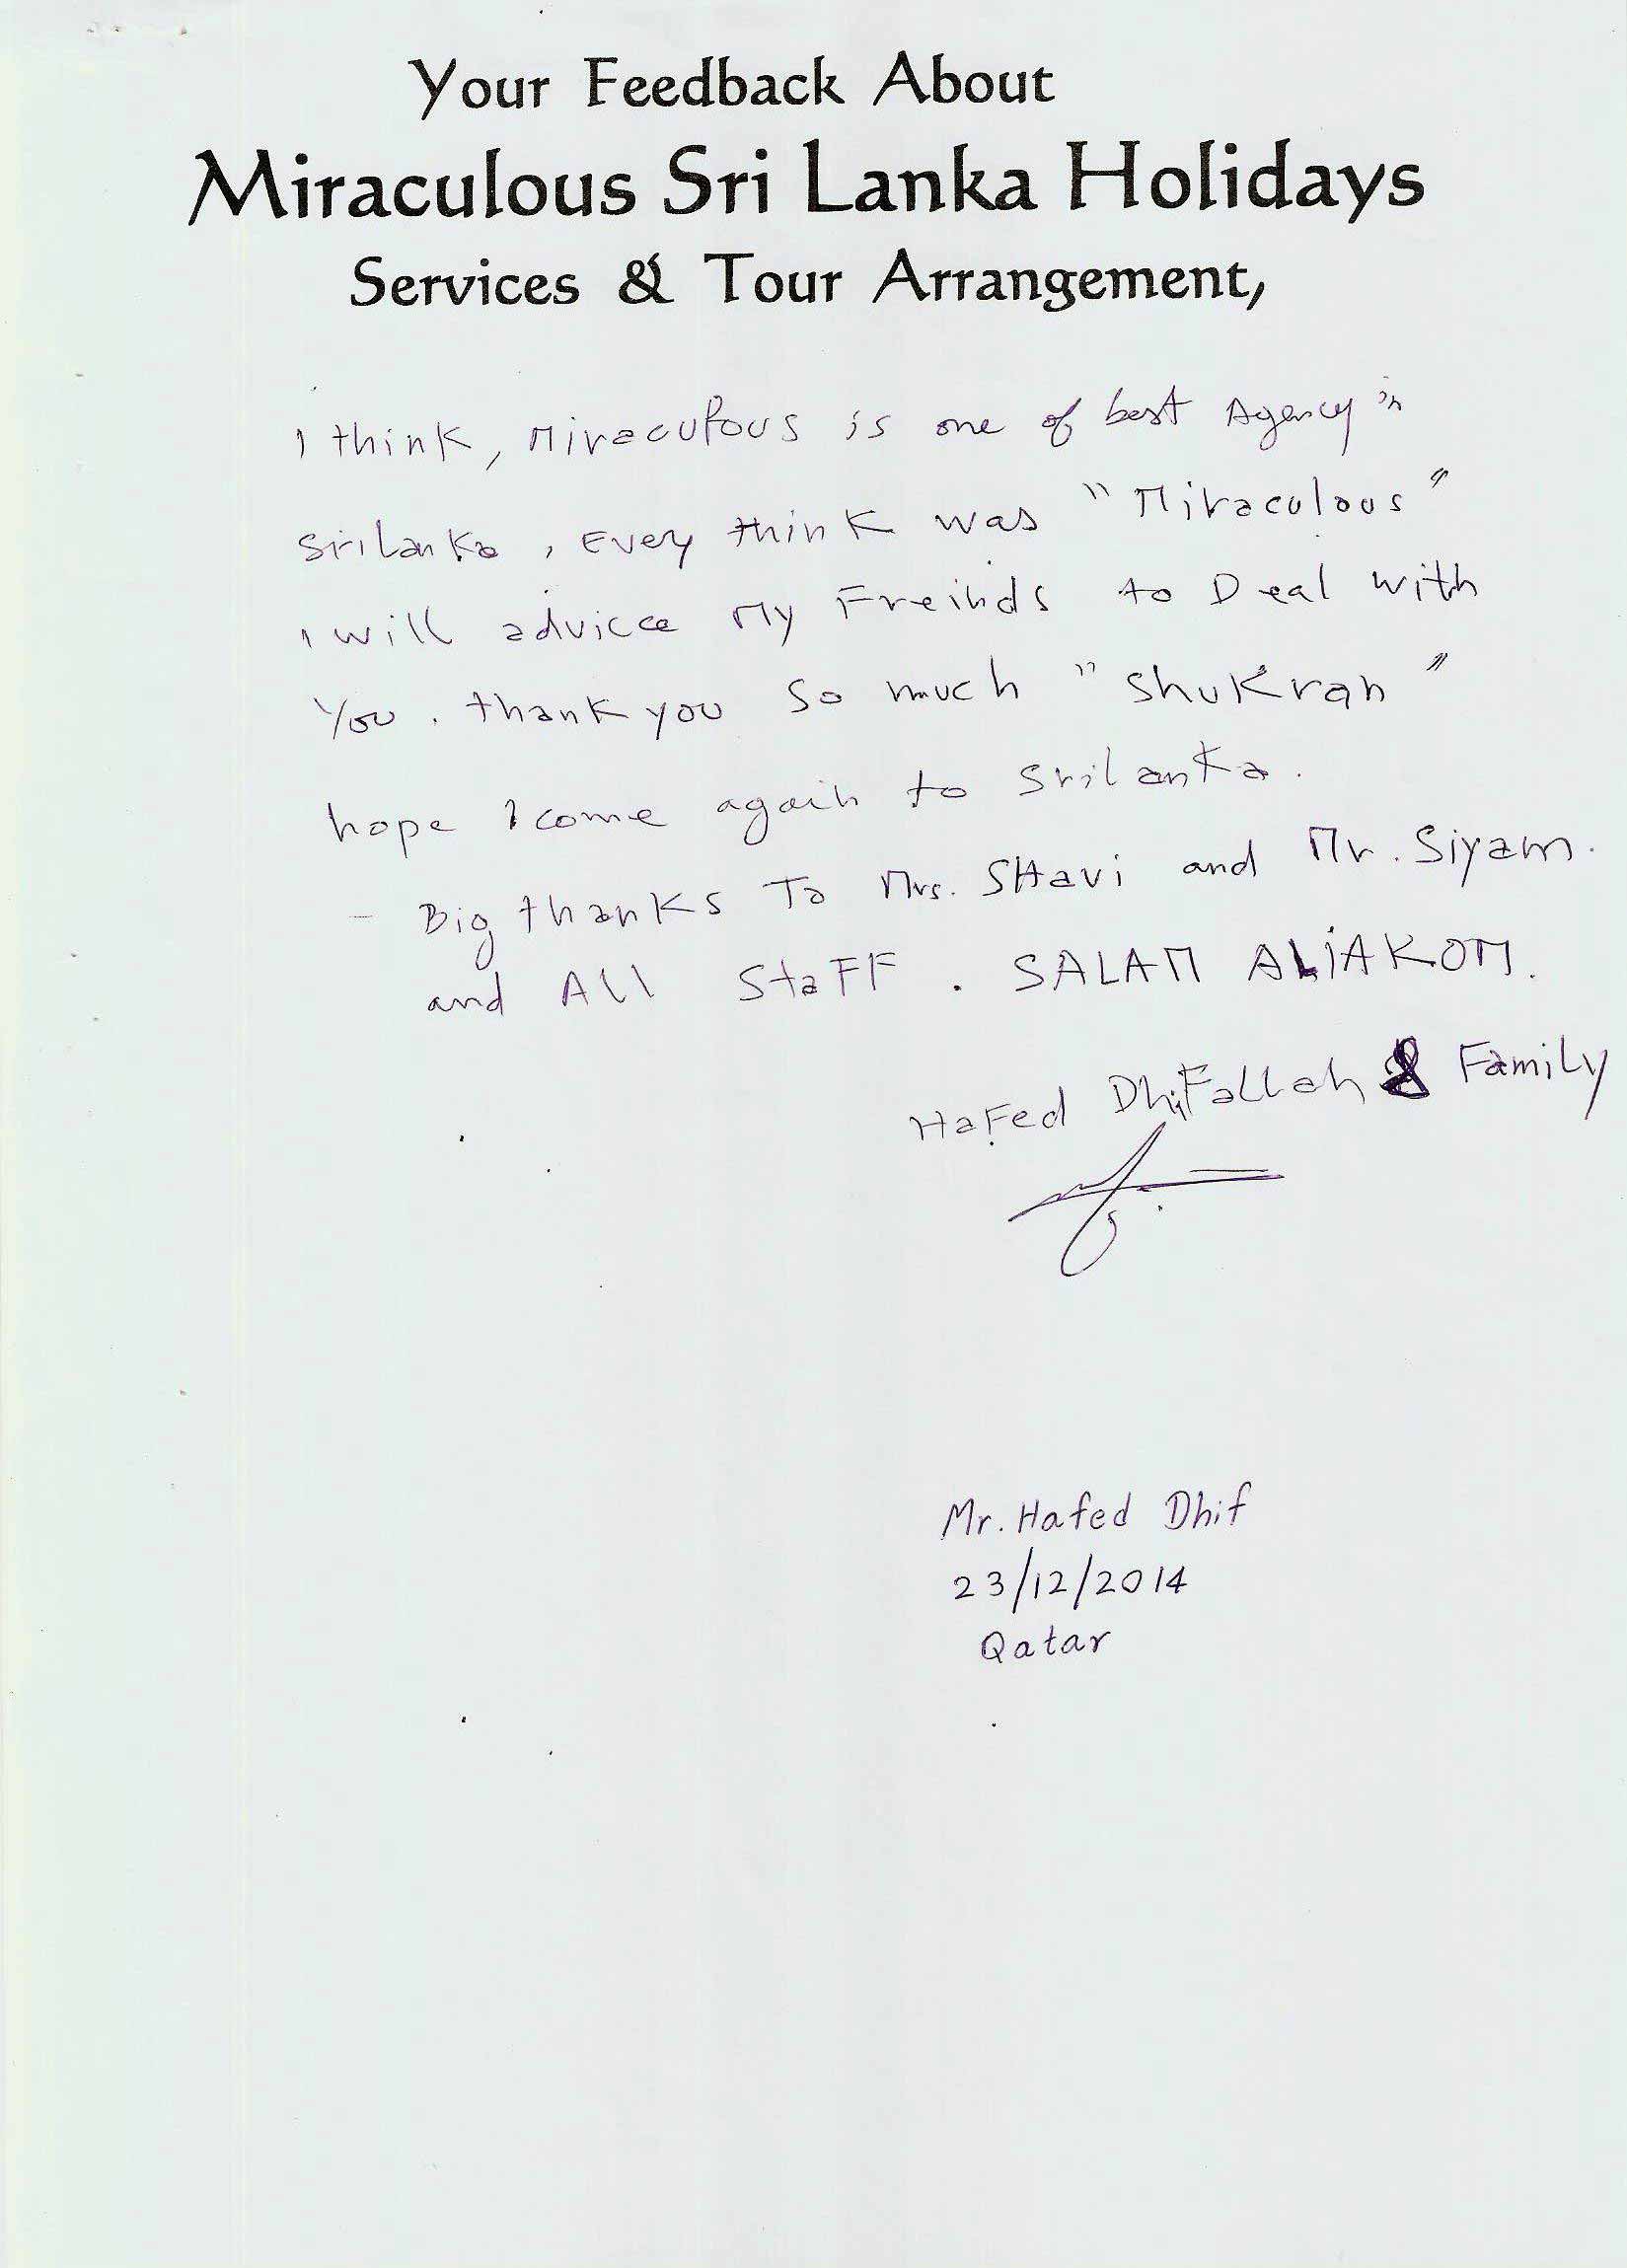 Your Feedback About
Miraculous Sri Lanka Holidays
Services & Tour Arrangement,
I think, Miraculous is one of best Agency in
SriLanka, Every think was "Miraculous"
I will advicce My Freinds to Deal with
You. thank you so much "Shukran"
hope I come again to Srilanka.
- Big thanks To Mrs. SHavi and Mr. Siyam.
and All StaFF. SALAM ALIAKOM.
HaFed DhiFallah & FamiLy
Mr. Hafed Dhif
23/12/2014
Qatar